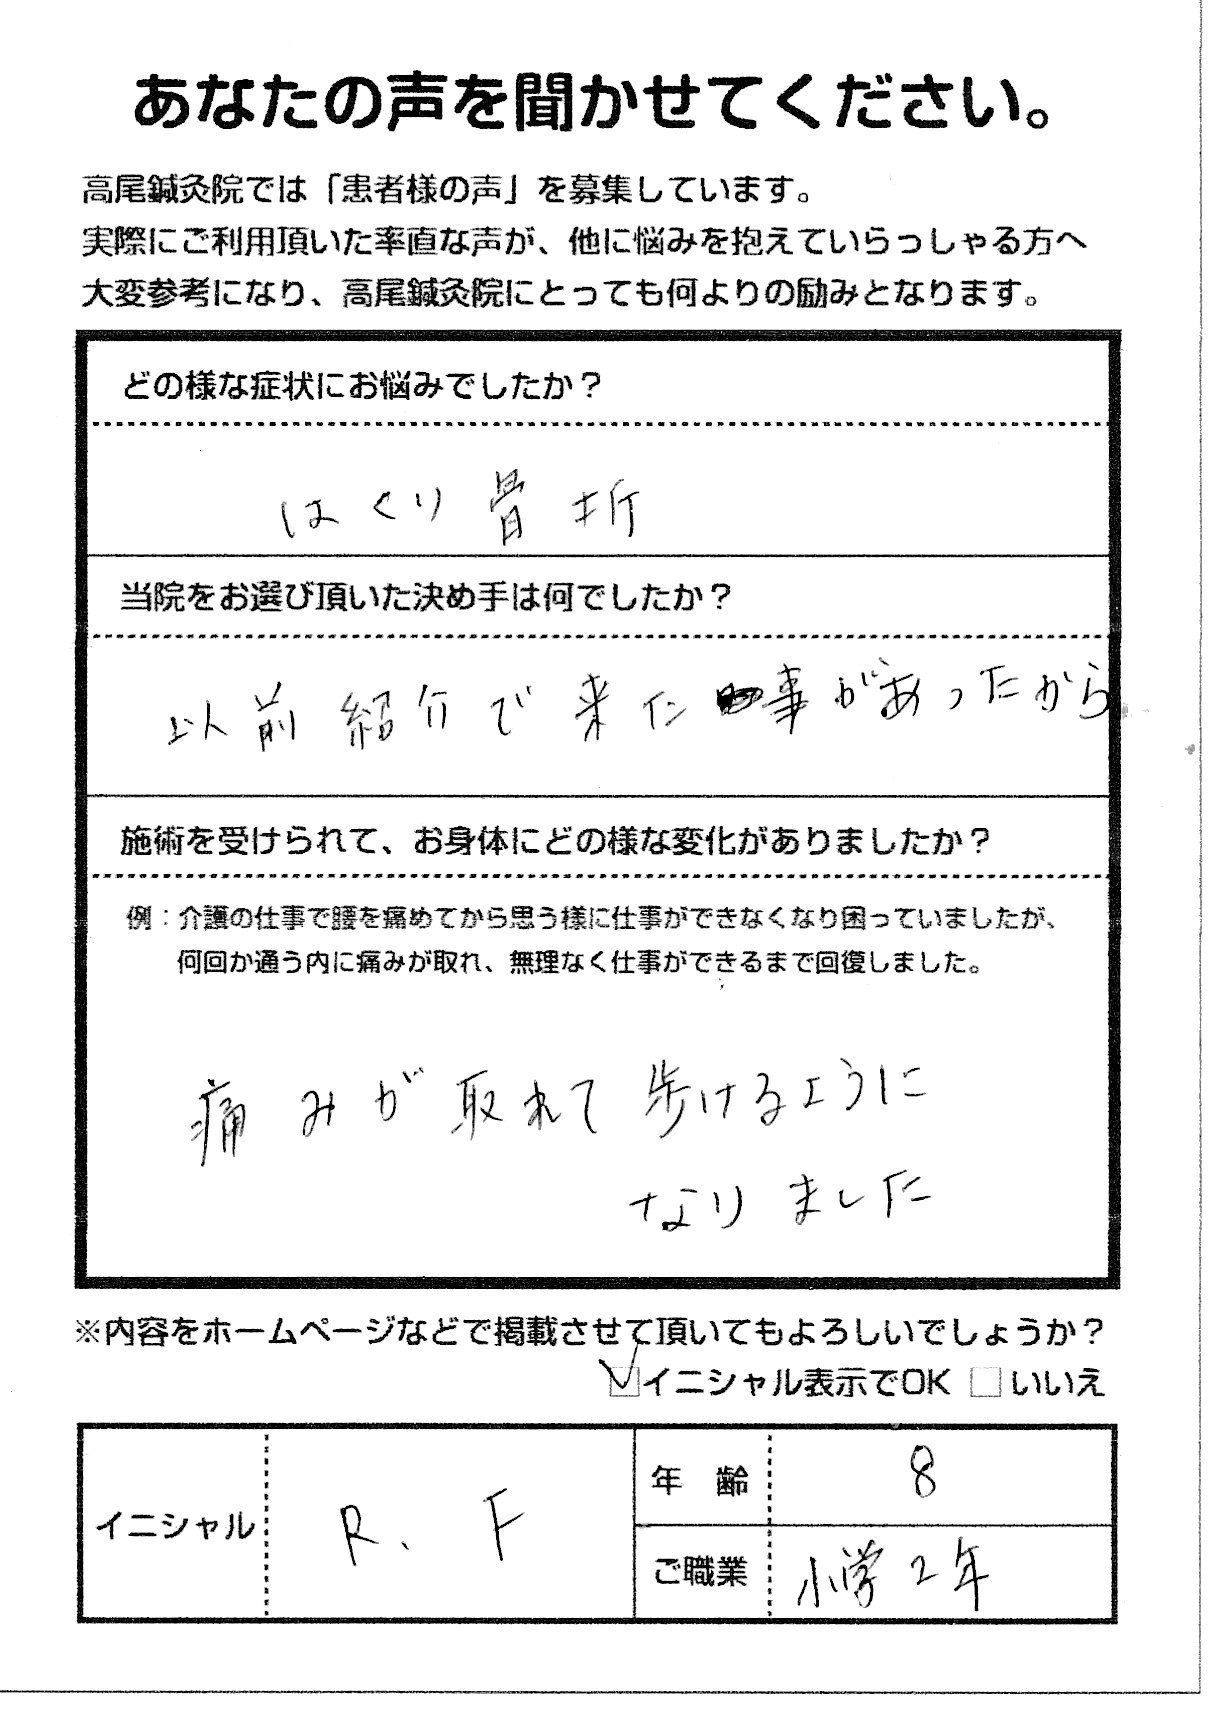 あなたの声を聞かせてください。
高尾鍼灸院では「患者様の声」を募集しています。
実際にご利用頂いた率直な声が、他に悩みを抱えていらっしゃる方へ
大変参考になり、高尾鍼灸院にとっても何よりの励みとなります。
どの様な症状にお悩みでしたか？
はくり骨折
当院をお選び頂いた決め手は何でしたか？
以前紹介で来た事があったから
施術を受けられて、お身体にどの様な変化がありましたか？
例：介護の仕事で腰を痛めてから思う様に仕事ができなくなり困っていましたが、
何回か通う内に痛みが取れ、無理なく仕事ができるまで回復しました。
痛みが取れて歩けるように
なりました
※内容をホームページなどで掲載させて頂いてもよろしいでしょうか？
イニシャル表示でOK □いいえ
イニシャル R. F
年齢 8
ご職業 小学2年